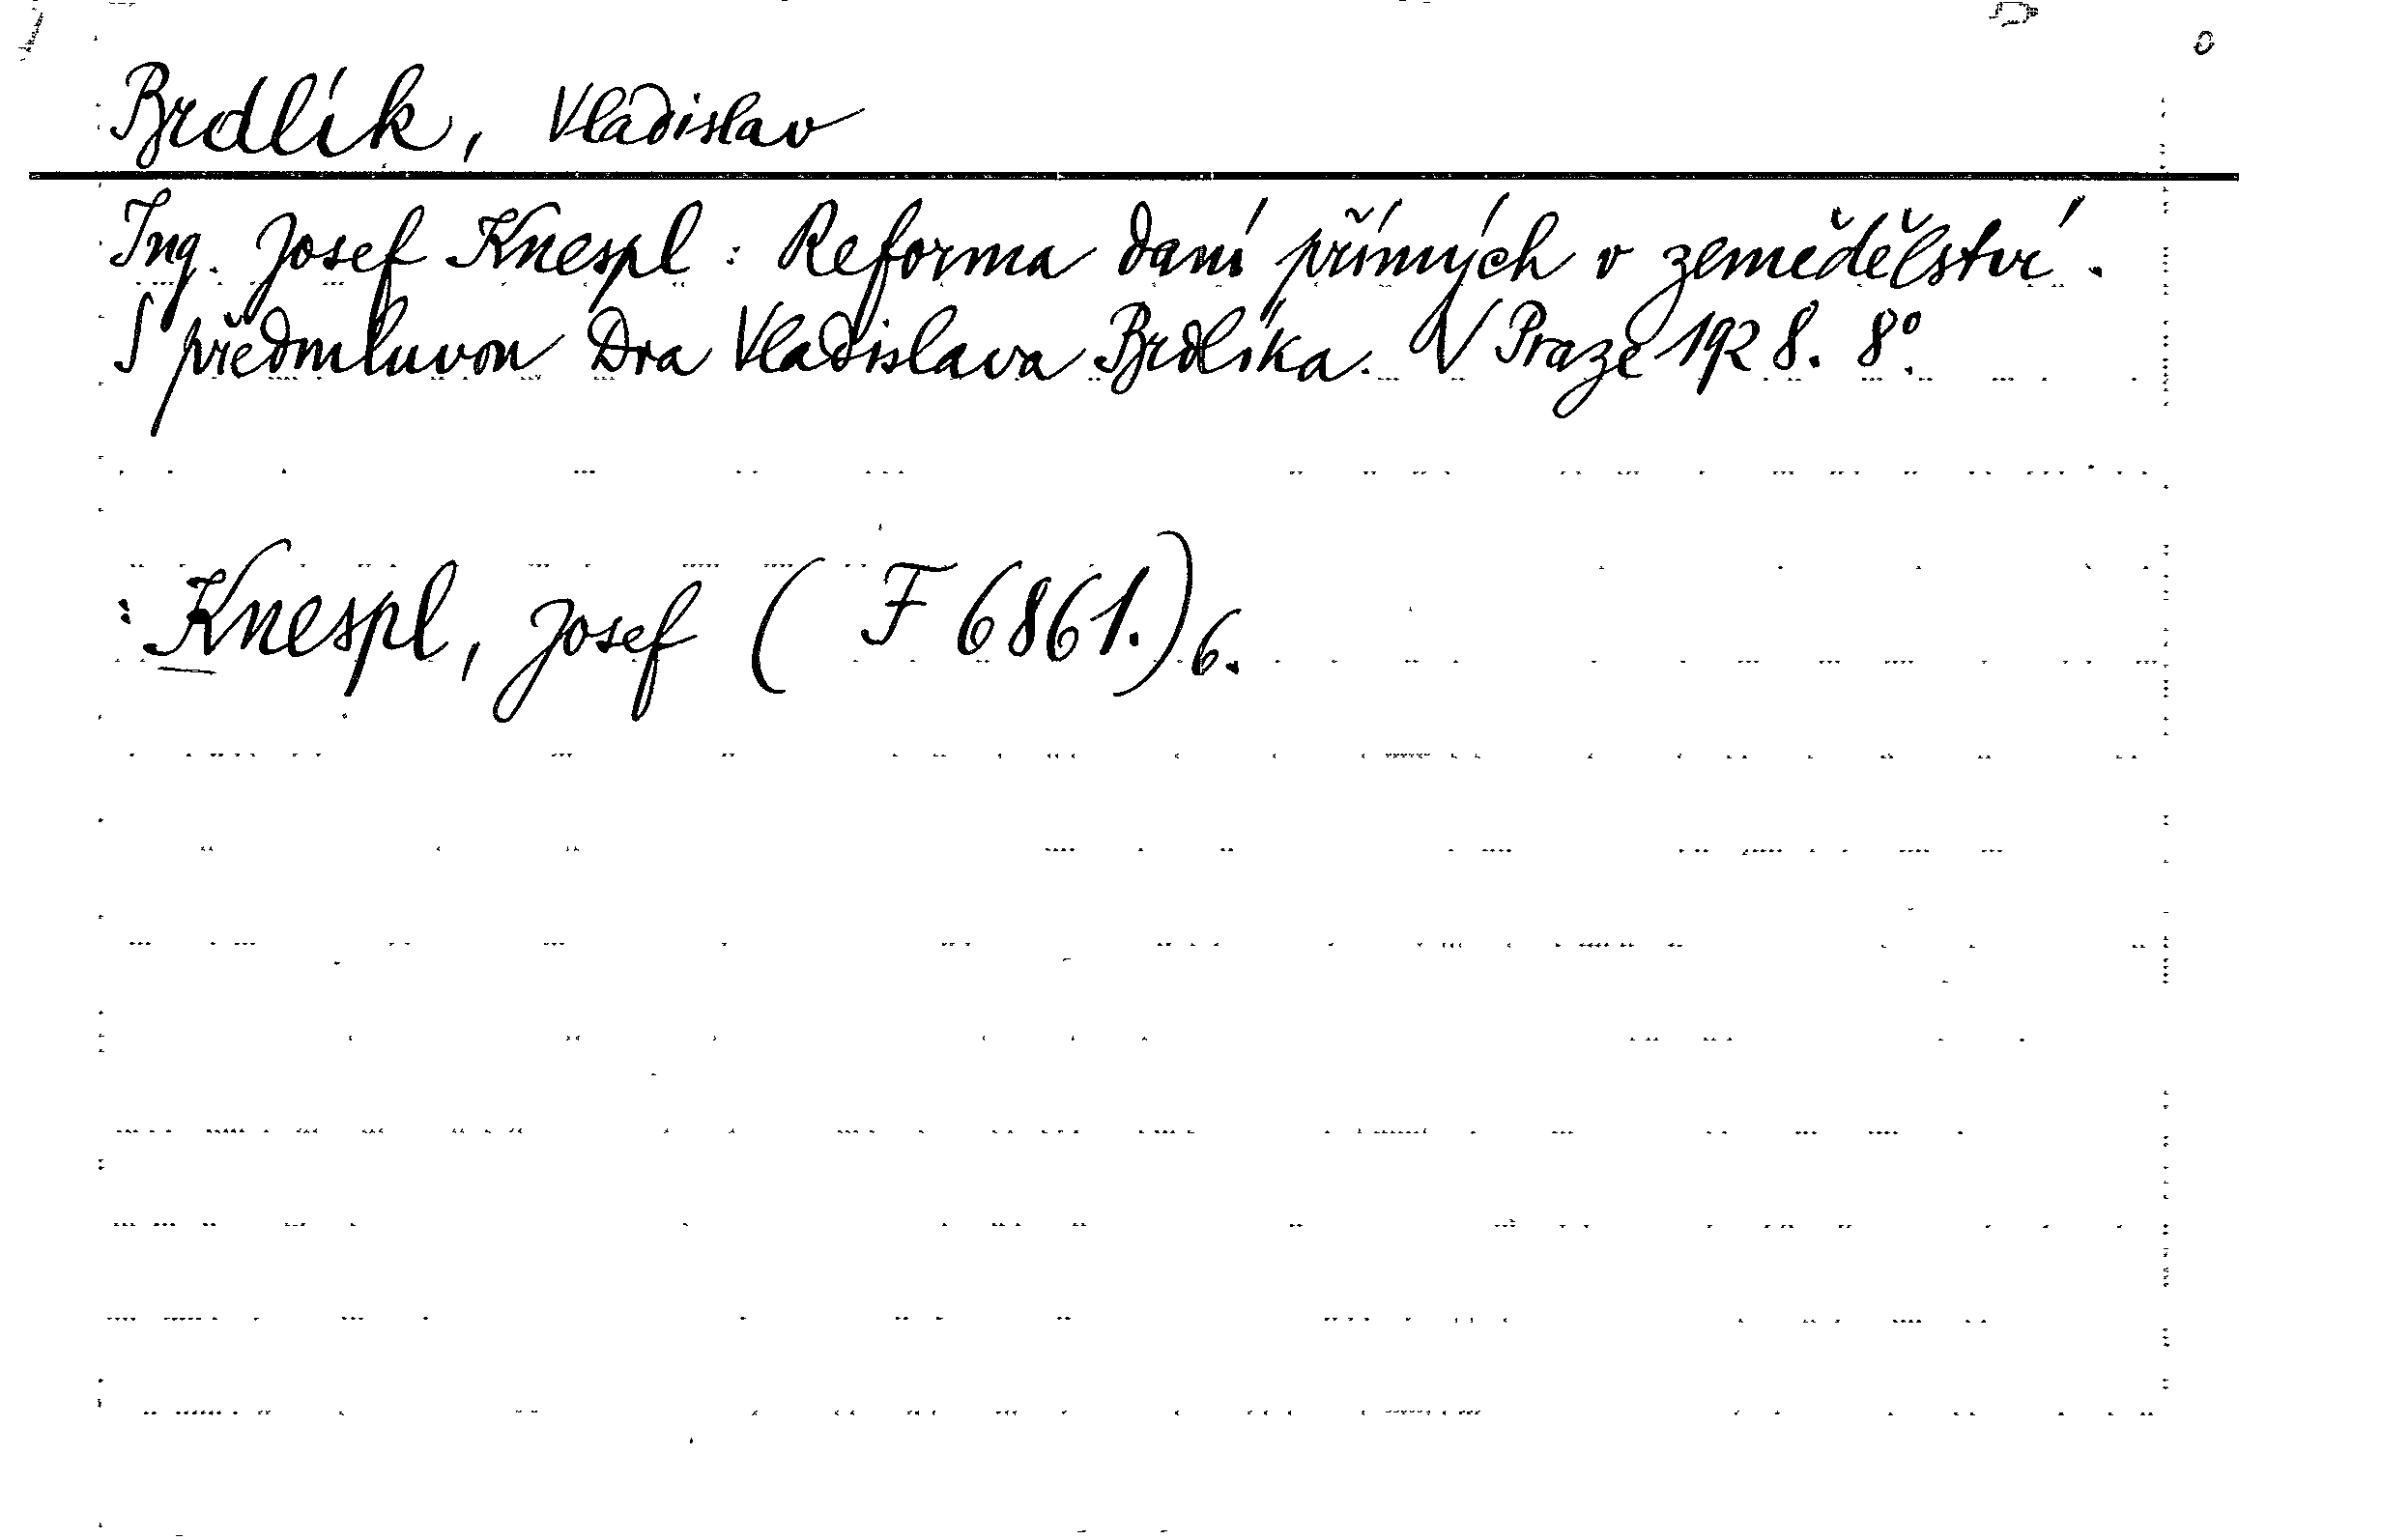 Brdlík, Vladislav
Ing. Josef Knespl : Reforma daní přímých v zemědělství.
S předmluvou Dra Vladislava Brdlíka. V Praze 1928. 8°.
: Knespl, Josef ( F 6861.) 6.